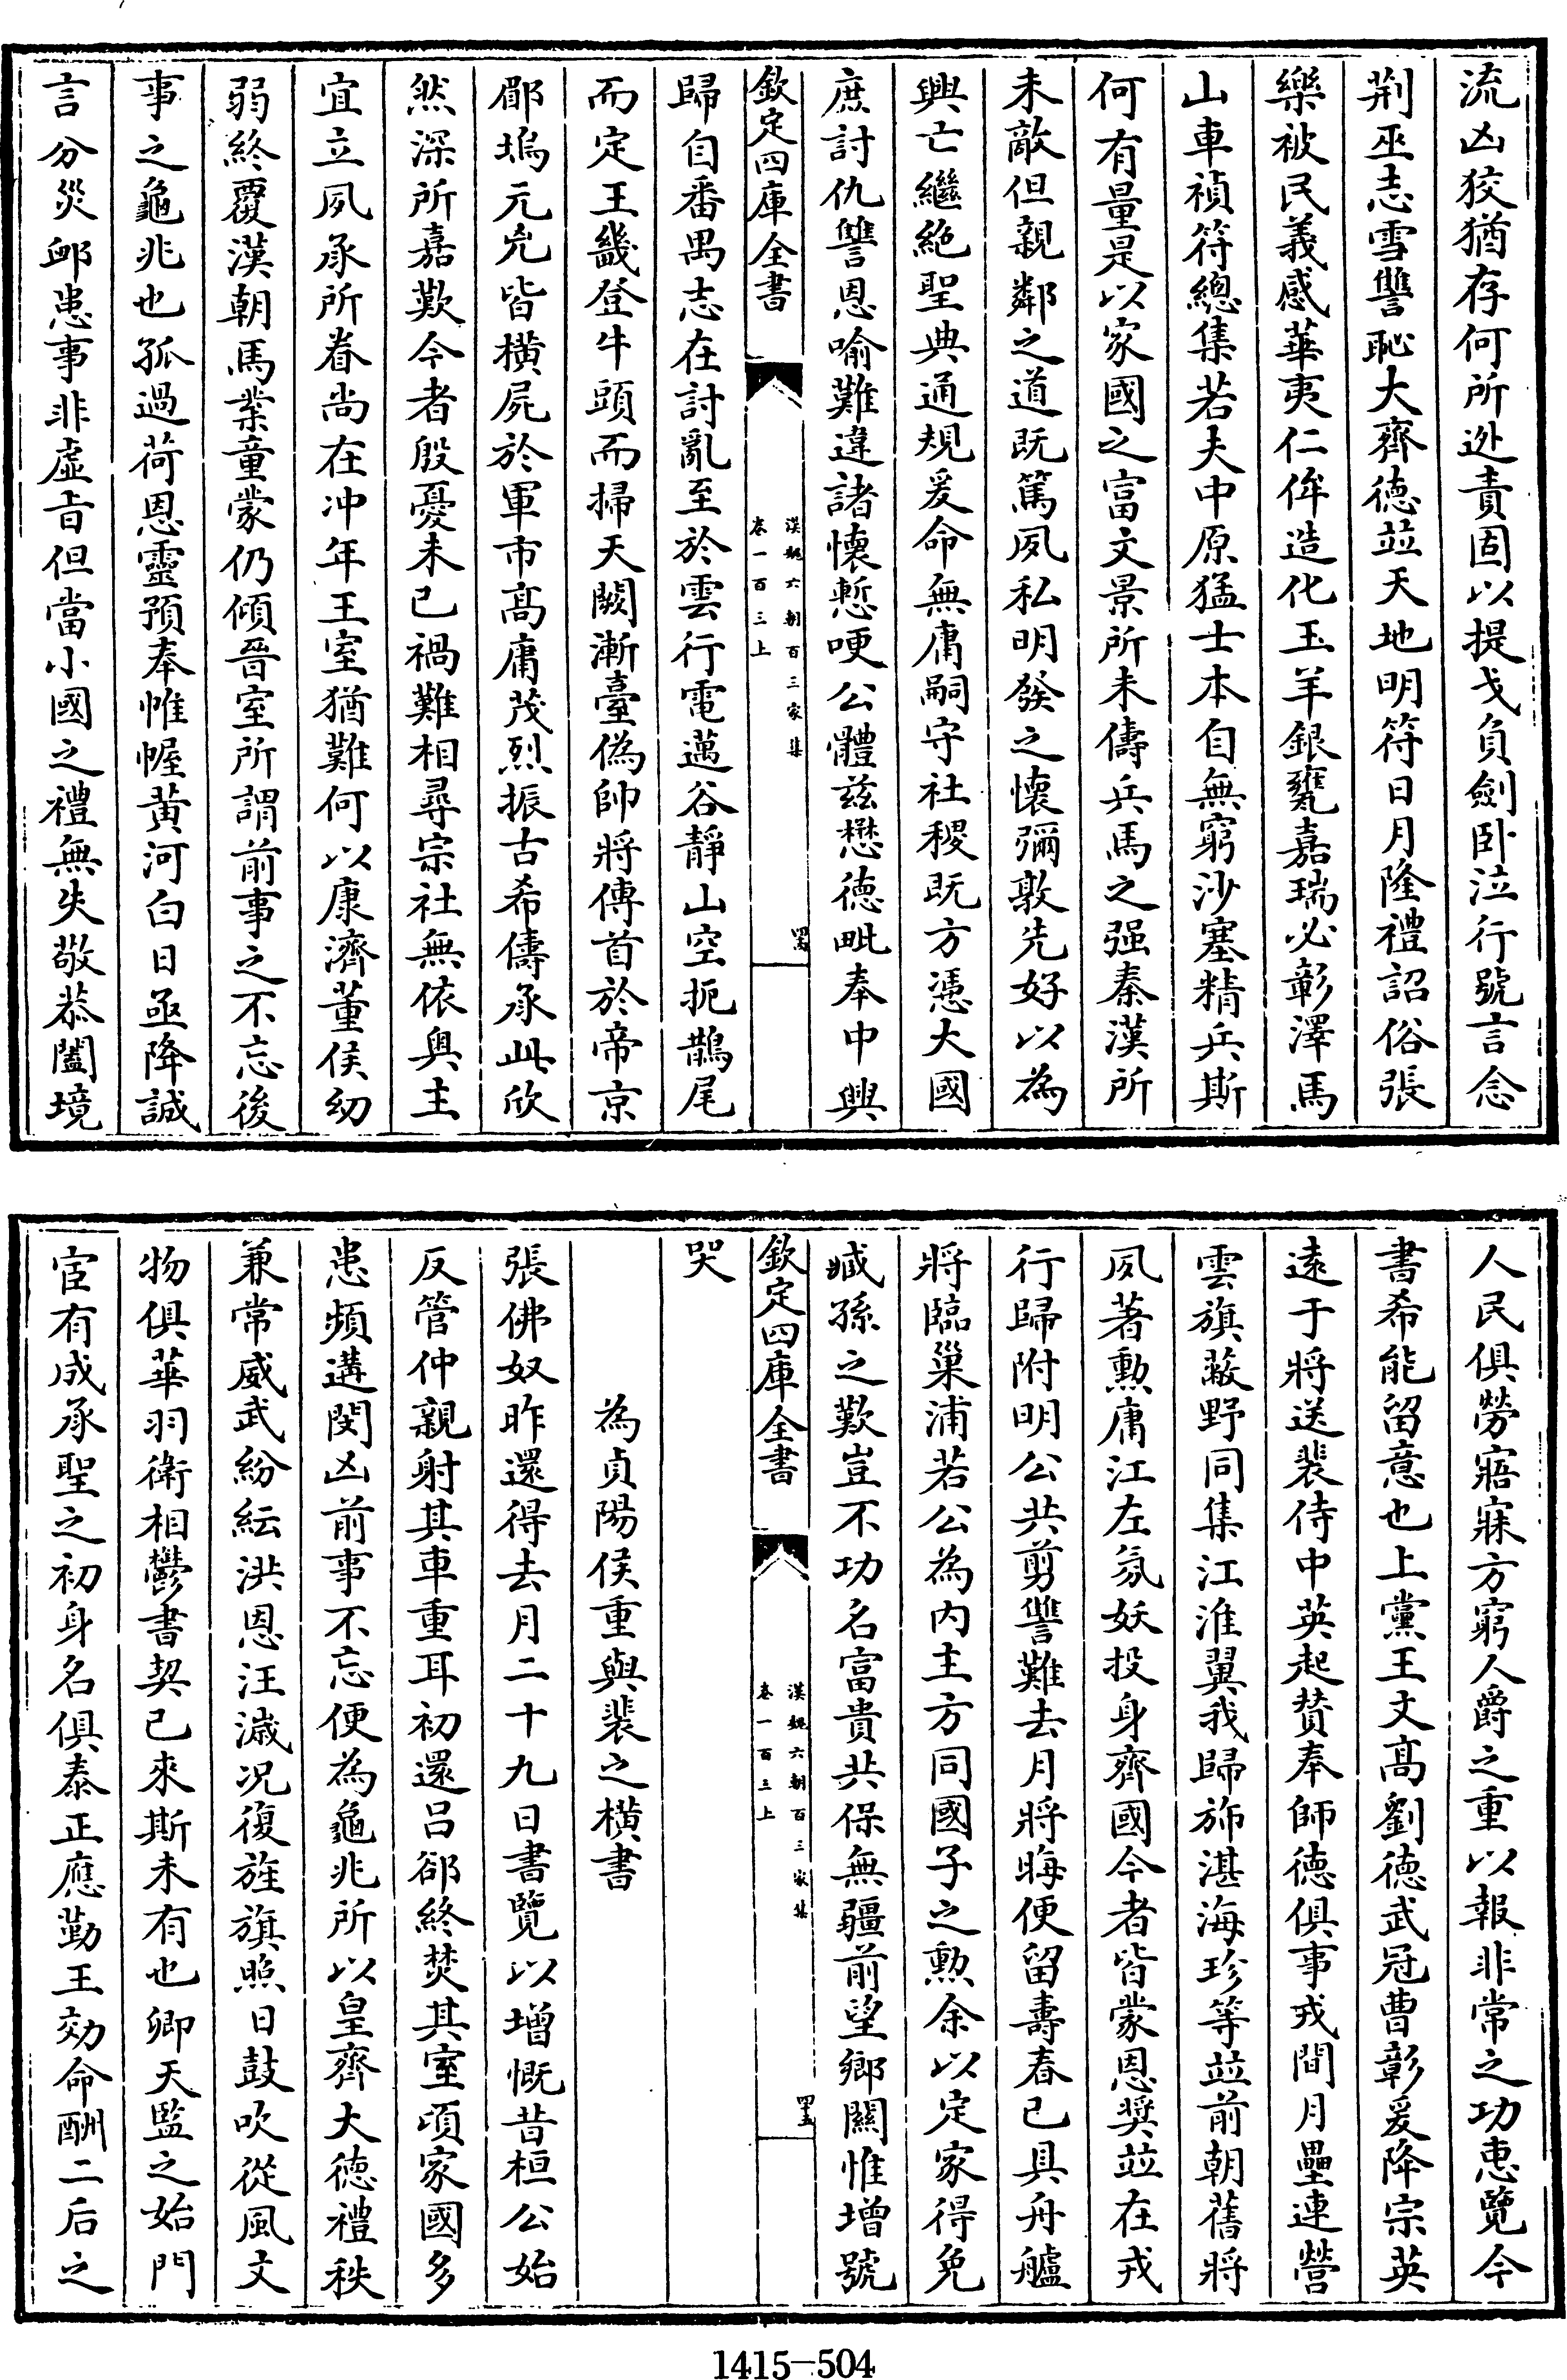 流凶狡猶存何所逃責固以提戈負劍卧泣行號言念
荆巫志雪讐恥大齊徳並天地明符日月隆禮詔俗張
樂被民義感華夷仁侔造化玉羊銀甕嘉瑞必彰澤馬
山車禎符總集若夫中原猛士本自無窮沙塞精兵斯
何有量是以家國之富文景所未儔兵馬之强秦漢所
未敵但親鄰之道既篤夙私明發之懷彌敦先好以為
興亡繼絶聖典通規爰命無庸嗣守社稷既方憑大國
庶討仇讐恩喻難違諸懷慙哽公體兹懋徳毗奉中興
欽定四庫全書
漢魏六朝百三家集
卷一百三上
歸自番禺志在討亂至於雲行電邁谷靜山空扼鵲尾
而定王畿登牛頭而掃天闕漸臺偽帥將傳首於帝京
郿塢元兇皆横屍於軍市髙庸茂烈振古希儔承此欣
然深所嘉歎今者殷憂未已禍難相尋宗社無依奥主
宜立夙承所眷尚在冲年王室猶難何以康濟董侯幼
弱終覆漢朝馬業童蒙仍傾晉室所謂前事之不忘後
事之龜兆也孤過荷恩靈預奉帷幄黄河白日亟降誠
言分災卹患事非虚旨但當小國之禮無失敬恭闔境
人民俱勞寤寐方窮人爵之重以報非常之功惠覽今
書希能留意也上黨王文髙劉徳武冠曹彰爰降宗英
逺于將送裴侍中英起賛奉師徳俱事戎間月壘連營
雲旗蔽野同集江淮翼我歸斾湛海珍等並前朝舊將
夙著勲庸江左氛妖投身齊國今者皆蒙恩奨並在戎
行歸附明公共剪讐難去月將晦便留壽春已具舟艫
將臨巢浦若公為内主方同國子之勲余以定家得免
臧孫之歎豈不功名富貴共保無疆前望鄉關惟增號
欽定四庫全書
漢魏六朝百三家集
卷一百三上
哭
為貞陽侯重與裴之横書
張佛奴昨還得去月二十九日書覽以增慨昔桓公始
反管仲親射其車重耳初還吕郤終焚其室頃家國多
患頻遘閔凶前事不忘便為龜兆所以皇齊大徳禮秩
兼常威武紛紜洪恩汪濊况復旌旗照日鼓吹從風文
物俱華羽衛相鬱書契已來斯未有也卿天監之始門
宦有成承聖之初身名俱泰正應勤王效命酬二后之
1415—504